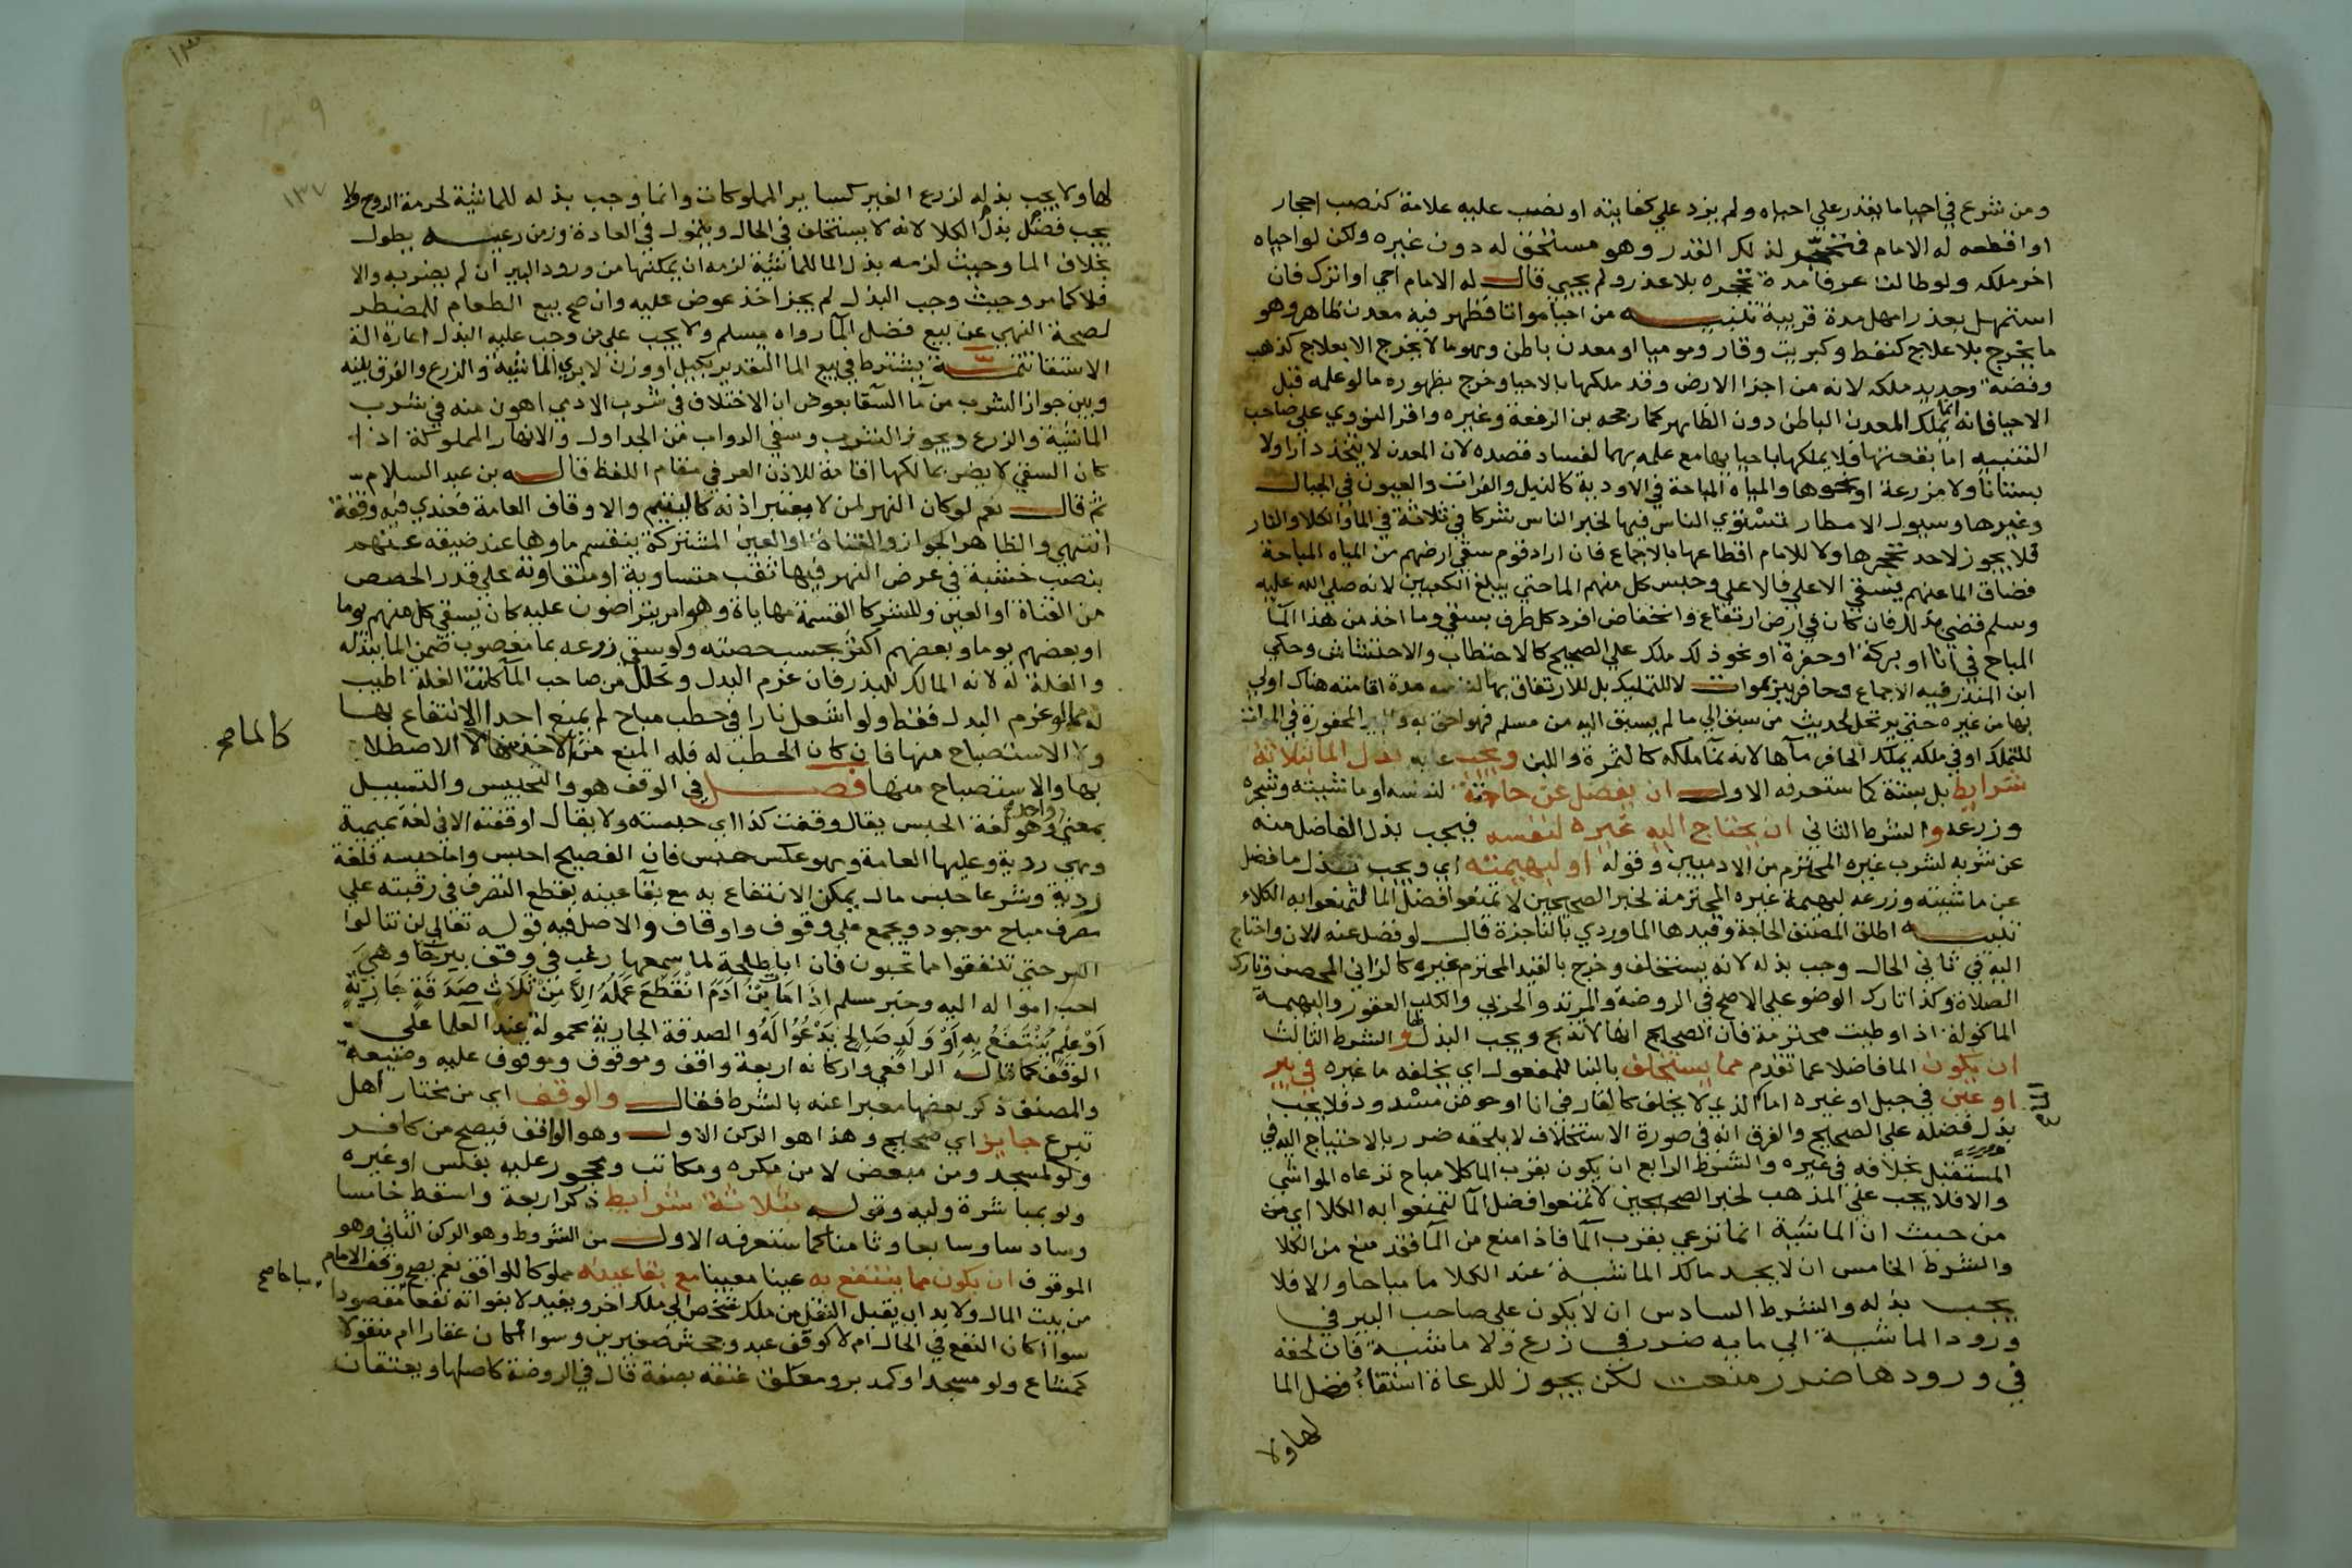 ومن شرع في احيا ما يقدر علي احياه ولم يزد علي كفايته او نصب عليه علامة كنصب احجار
او اقطعه له الامام فمتحجر لذلك القدر وهو مستحق له دون غيره ولكن لو احياه
اخر ملكه ولو طالت عرفا مدة تحجره بلا عذر ولم يحيي قال له الامام احي او اترك فان
استمهل بعذر امهل مدة قريبة تنبيه من احيا مواتا فظهر فيه معدن ظاهر وهو
ما يخرج بلا علاج كنفط وكبريت وقار وموميا او معدن باطن وهو ما لا يخرج الا بعلاج كذهب
وفضة وحديد ملكه لانه من اجزا الارض وقد ملكها بالاحيا وخرج بظهوره ما لو علمه قبل
الاحيا فانه انما يملك المعدن الباطن دون الظاهر كما رجحه بن الرفعة وغيره واقر النووي علي صاحب
التنبيه اما بقعتهما فلا يملكها باحيايها مع علمه بهما لفساد قصده لان المعدن لا يتخذ دارا ولا
بستانا ولا مزرعة او نحوها والمياه المباحة في الاودية كالنيل والفرات والعيون في الجبال
وغيرها وسيول الامطار تستوي الناس فيها لخبر الناس شركا في ثلاثة في الما والكلا والنار
فلا يجوز لاحد تحجرها ولا للامام اقطاعها بالاجماع فان اراد قوم سقي ارضهم من المياه المباحة
فضاق الما عنهم يسقي الاعلي فالاعلي وحبس كل منهم الما حتي يبلغ الكعبين لانه صلي الله عليه
وسلم قضي بذلك فان كان في ارض ارتفاع وانخفاض افرد كل طرف بسقي وما اخذ من هذا الما
المباح في انا او بركة او حفرة او نحو ذلك ملك علي الصحيح كالاحتطاب والاحتشاش وحكي
ابن المنذر فيه الاجماع وحافر بير بموات لا للتمليك بل للارتفاق بها لنفسه مدة اقامته هناك اولي
بها من غيره حتي يرتحل لحديث من سبق الي ما لم يسبق اليه من مسلم فهو احق به والبير المحفورة في الموات
للتملك او في ملكه يملك الحافر ماها لانه نما ملكه كالثمرة واللبن ويجب عليه بذل الما بثلاثة
شرايط بل بستة كما ستعرفه الاول ان يفضل عن حاجته لنفسه او ماشيته وشجره
وزرعه والشرط الثاني ان يحتاج اليه غيره لنفسه فيجب بذل الفاضل منه
عن شربه لشرب غيره المحترم من الادميين وقوله او لبهيمته اي ويجب بذل ما فضل
عن ماشيته وزرعه لبهيمة غيره المحترمة لخبر الصحيحين لا تمنعوا فضل الما لتمنعوا به الكلاء
تنبيه اطلق المصنف الحاجة وقيدها الماوردي بالناجزة قال لو فضل عنه الان واحتاج
اليه في ثاني الحال وجب بذله لانه يستخلف وخرج بالقيد المحترم غيره كالزاني المحصن وتارك
الصلاة وكذا تارك الوضو علي الاصح في الروضة والمرتد والحربي والكلب العقور والبهيمة
الماكولة اذا وطيت محترمة فان الصحيح انها لا تذبح ويجب البذل لها والشرط الثالث
ان يكون الما فاضلا عما تقدم مما يستخلف بالبنا للمفعول اي يخلفه ما غيره في بير
او عين في جبل او غيره اما الذي لا يخلف كالقار في انا او حوض مسدود فلا يجب
بذل فضله علي الصحيح والفرق انه في صورة الاستخلاف لا يلحقه ضرر بالاحتياج اليه في
المستقبل بخلافه في غيره والشرط الرابع ان يكون بقرب الما كلا مباح ترعاه المواشي
والا فلا يجب علي المذهب لخبر الصحيحين لا تمنعوا فضل الما لتمنعوا به الكلا اي من
من حيث ان الماشية انما ترعي بقرب الما فاذا منع من الما فقد منع من الكلا
والشرط الخامس ان لا يجد مالك الماشية عند الكلا ما مباحا والا فلا
يجب بذله والشرط السادس ان لا يكون علي صاحب البير في
ورود الماشية الي مايه ضرر في زرع ولا ماشية فان لحقه
في ورودها ضرر منعت لكن يجوز للرعاة استقاء فضل الما
لها ولا
١٣٧
لها ولا يجب بذله لزرع الغير كساير المملوكات وانما وجب بذله للماشية لحرمة الروح ولا
يجب فضل بذل الكلا لانه لا يستخلف في الحال ويتمول في العادة وزمن رعيه يطول
بخلاف الما وحيث لزمه بذل الما للماشية لزمه ان يمكنها من ورود البير ان لم يضر به والا
فلا كما مر وحيث وجب البذل لم يجز اخذ عوض عليه وان صح بيع الطعام للمضطر
لصحة النهي عن بيع فضل الما رواه مسلم ولا يجب علي من وجب عليه البذل اعارة الة
الاستقا تتمة يشترط في بيع الما التقدير بكيل او وزن لا بري الماشية والزرع والفرق بينه
وبين جواز الشرب من ما السقا بعوض ان الاختلاف في شرب الادمي اهون منه في شرب
الماشية والزرع ويجوز الشرب وسقي الدواب من الجداول والانهار المملوكة اذا
كان السقي لا يضر بمالكها اقامة للاذن العرفي مقام اللفظ قاله بن عبد السلام
ثم قال نعم لو كان النهر لمن لا يعتبر اذنه كاليتيم والاوقاف العامة فعندي فيه وقفة
انتهي والظاهر الجواز والقناة او العين المشتركة ينقسم ماوها عند ضيقه عنهم
بنصب خشبة في عرض النهر فيها ثقب متساوية او متفاوتة علي قدر الحصص
من القناة او العين وللشركا القسمة مهاياة وهو امر يتراضون عليه كان يسقي كل منهم يوما
او بعضهم يوما وبعضهم اكثر بحسب حصته ولو سقي زرعه بما مغصوب ضمن الما ببذله
والغلة له لانه المالك للبذر فان غرم البدل وتحلل من صاحب الما كانت الغلة اطيب
له مما لو غرم البدل فقط ولو اشعل نارا في حطب مباح لم يمنع احدا الانتفاع بها
ولا الاستصباح منها فان كان الحطب له فله المنع من الاخذ منها لا الاصطلا
بها والاستصباح منها فصل في الوقف هو والتحبيس والتسبيل
بمعني واحد وهو لغة الحبس يقال وقفت كذا اي حبسته ولا يقال اوقفته الا في لغة تميمية
وهي ردية وعليها العامة وهو عكس حبس فان الفصيح احبس واما حبسه فلغة
ردية وشرعا حبس مال يمكن الانتفاع به مع بقا عينه بقطع التصرف في رقبته علي
مصرف مباح موجود ويجمع علي وقوف واوقاف والاصل فيه قوله تعالي لن تنالوا
البر حتي تنفقوا مما تحبون فان ابا طلحة لما سمعها رغب في وقف بيرحا وهي
احب امواله اليه وخبر مسلم اِذَا مَاتَ ابْنُ ادَمَ انْقَطَعَ عَمَلُهُ اِلاَّ مِنْ ثَلاَثٍ صَدَقَةٍ جَارِيَةٍ
اَوْ عِلْمٍ يُنْتَفَعُ بِهِ اَوْ وَلَدٍ صَالِحٍ يَدْعُوُا لَهُ والصدقة الجارية محمولة عند العلما علي
الوقف كما قاله الرافعي واركانه اربعة واقف وموقوف وموقوف عليه وصيغة
والمصنف ذكر بعضها معبرا عنه بالشرط فقال والوقف اي من مختار اهل
تبرع جايز اي صحيح وهذا هو الركن الاول وهو الواقف فيصح من كافر
ولو لمسجد ومن مبعض لا من مكره ومكاتب ومحجور عليه بفلس او غيره
ولو بمباشرة وليه وقوله بثلاثة شرايط ذكر اربعة واسقط خامسا
وسادسا وسابعا وثامنا كما ستعرفه الاول من الشروط وهو الركن الثاني وهو
الموقوف ان يكون مما ينتفع به عينا معينا مع بقا عينه مملوكا للواقف نعم يصح وقف الامام
من بيت المال ولا بد ان يقبل النقل من ملك شخص الي ملك اخر ويفيد لا بفواته نفعا مقصودا
سوا اكان النفع في الحال ام لا كوقف عبد وجحش صغيرين وسوا اكان عقارا ام منقولا
كمشاع ولو مسجدا وكمدبر ومعلق عتقه بصفة قال في الروضة كاصلها ويعتقان
كالماصح
مباحا صح